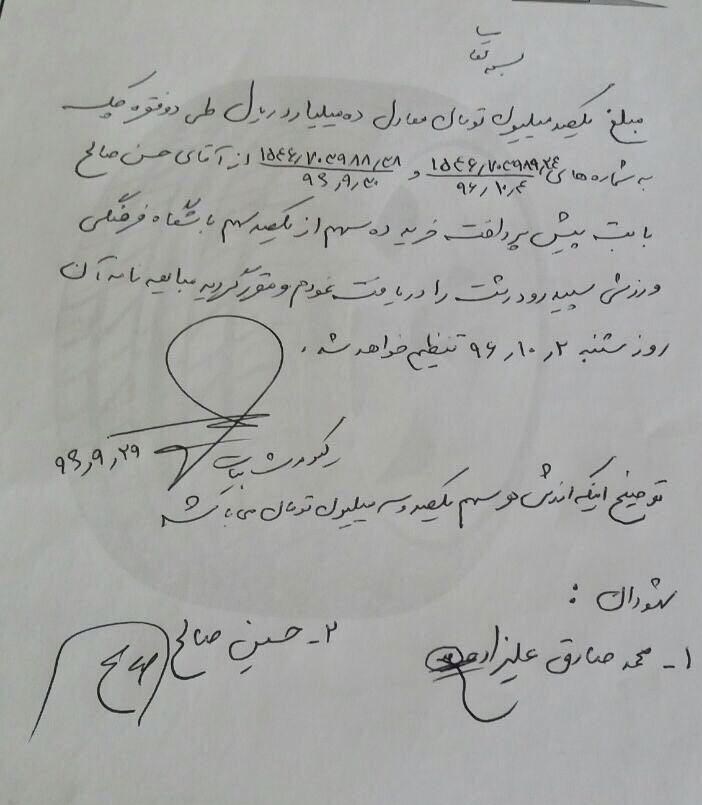 بسمه تعالی
مبلغ یکصد میلیون تومان معادل ده میلیارد ریال طی دو فقره چک
به شماره های ۱۵۴۶٫۷۰۳۹۸۹٫۲۴ و ۱۵۴۶٫۷۰۳۹۸۸٫۳۸ از آقای حسن صالح
۹۶٫۱۰٫۴ ۹۶٫۹٫۳۰
بابت پیش پرداخت خرید ده سهم از یکصد سهم باشگاه فرهنگی
ورزشی سپیدرود رشت را دریافت نمودم و مقرر گردید مبایعه نامه آن
روز شنبه ۹۶٫۱۰٫۲ تنظیم خواهد شد.
۹۶٫۹٫۲۹
توضیح اینکه ارزش هر سهم یکصد و سه میلیون تومان می باشد
شهودان :
۱- محمد صادق علیزاده
۲- حسین صالح